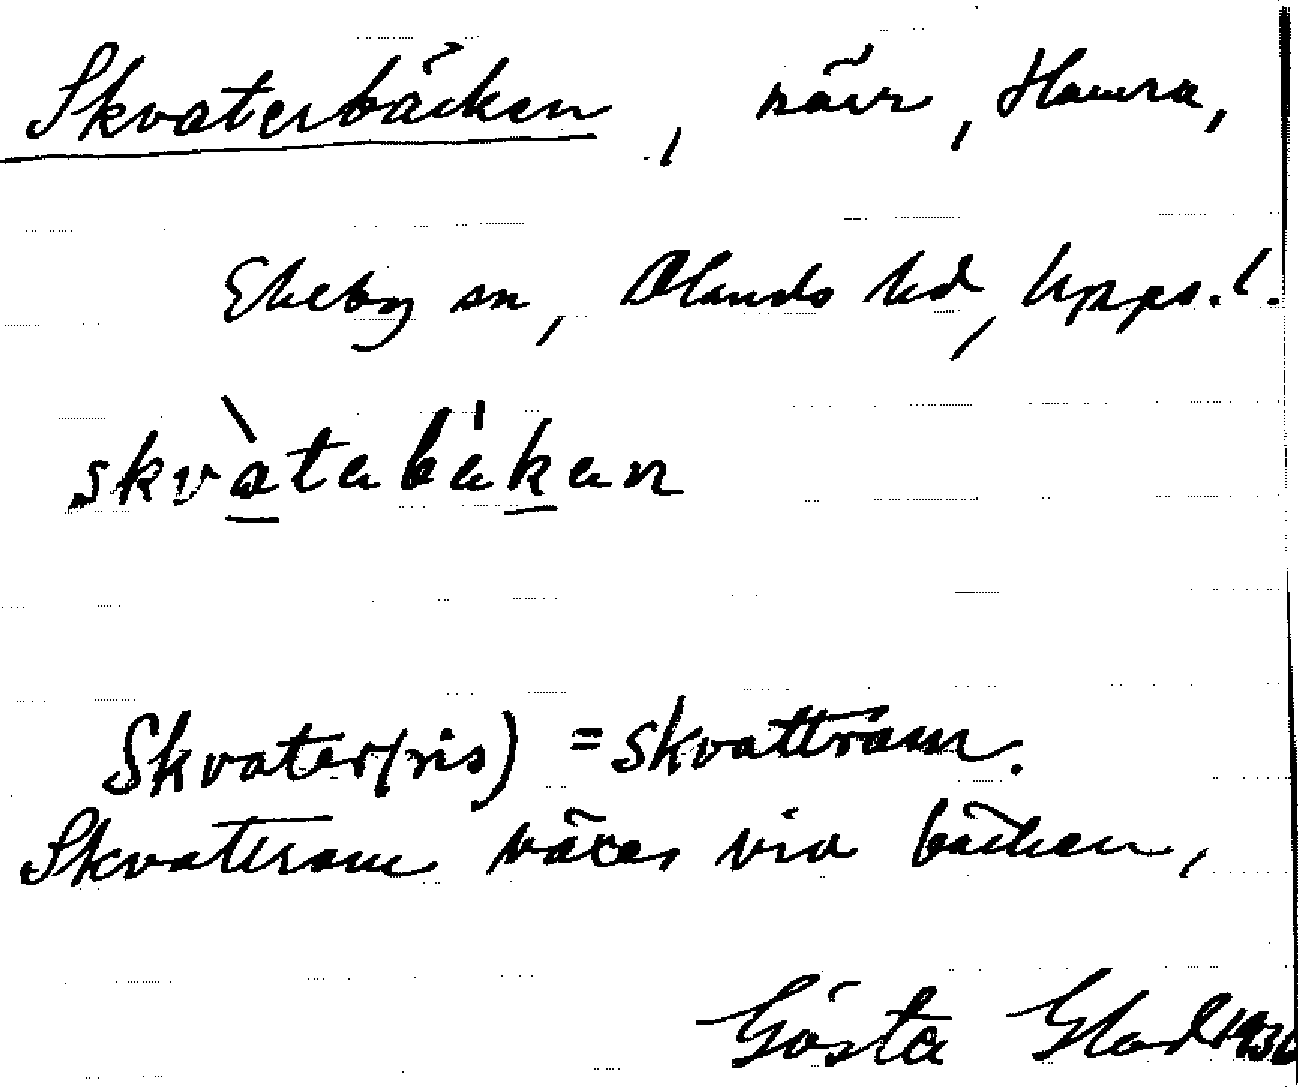 Skvaterbäcken, när, Hamra,
Ekeby sn, Olands hd, Upps. l.
skvàtabäkan
Skvater(ris) = skvattram.
Skvattram växer vid bäcken,
Gösta Glad